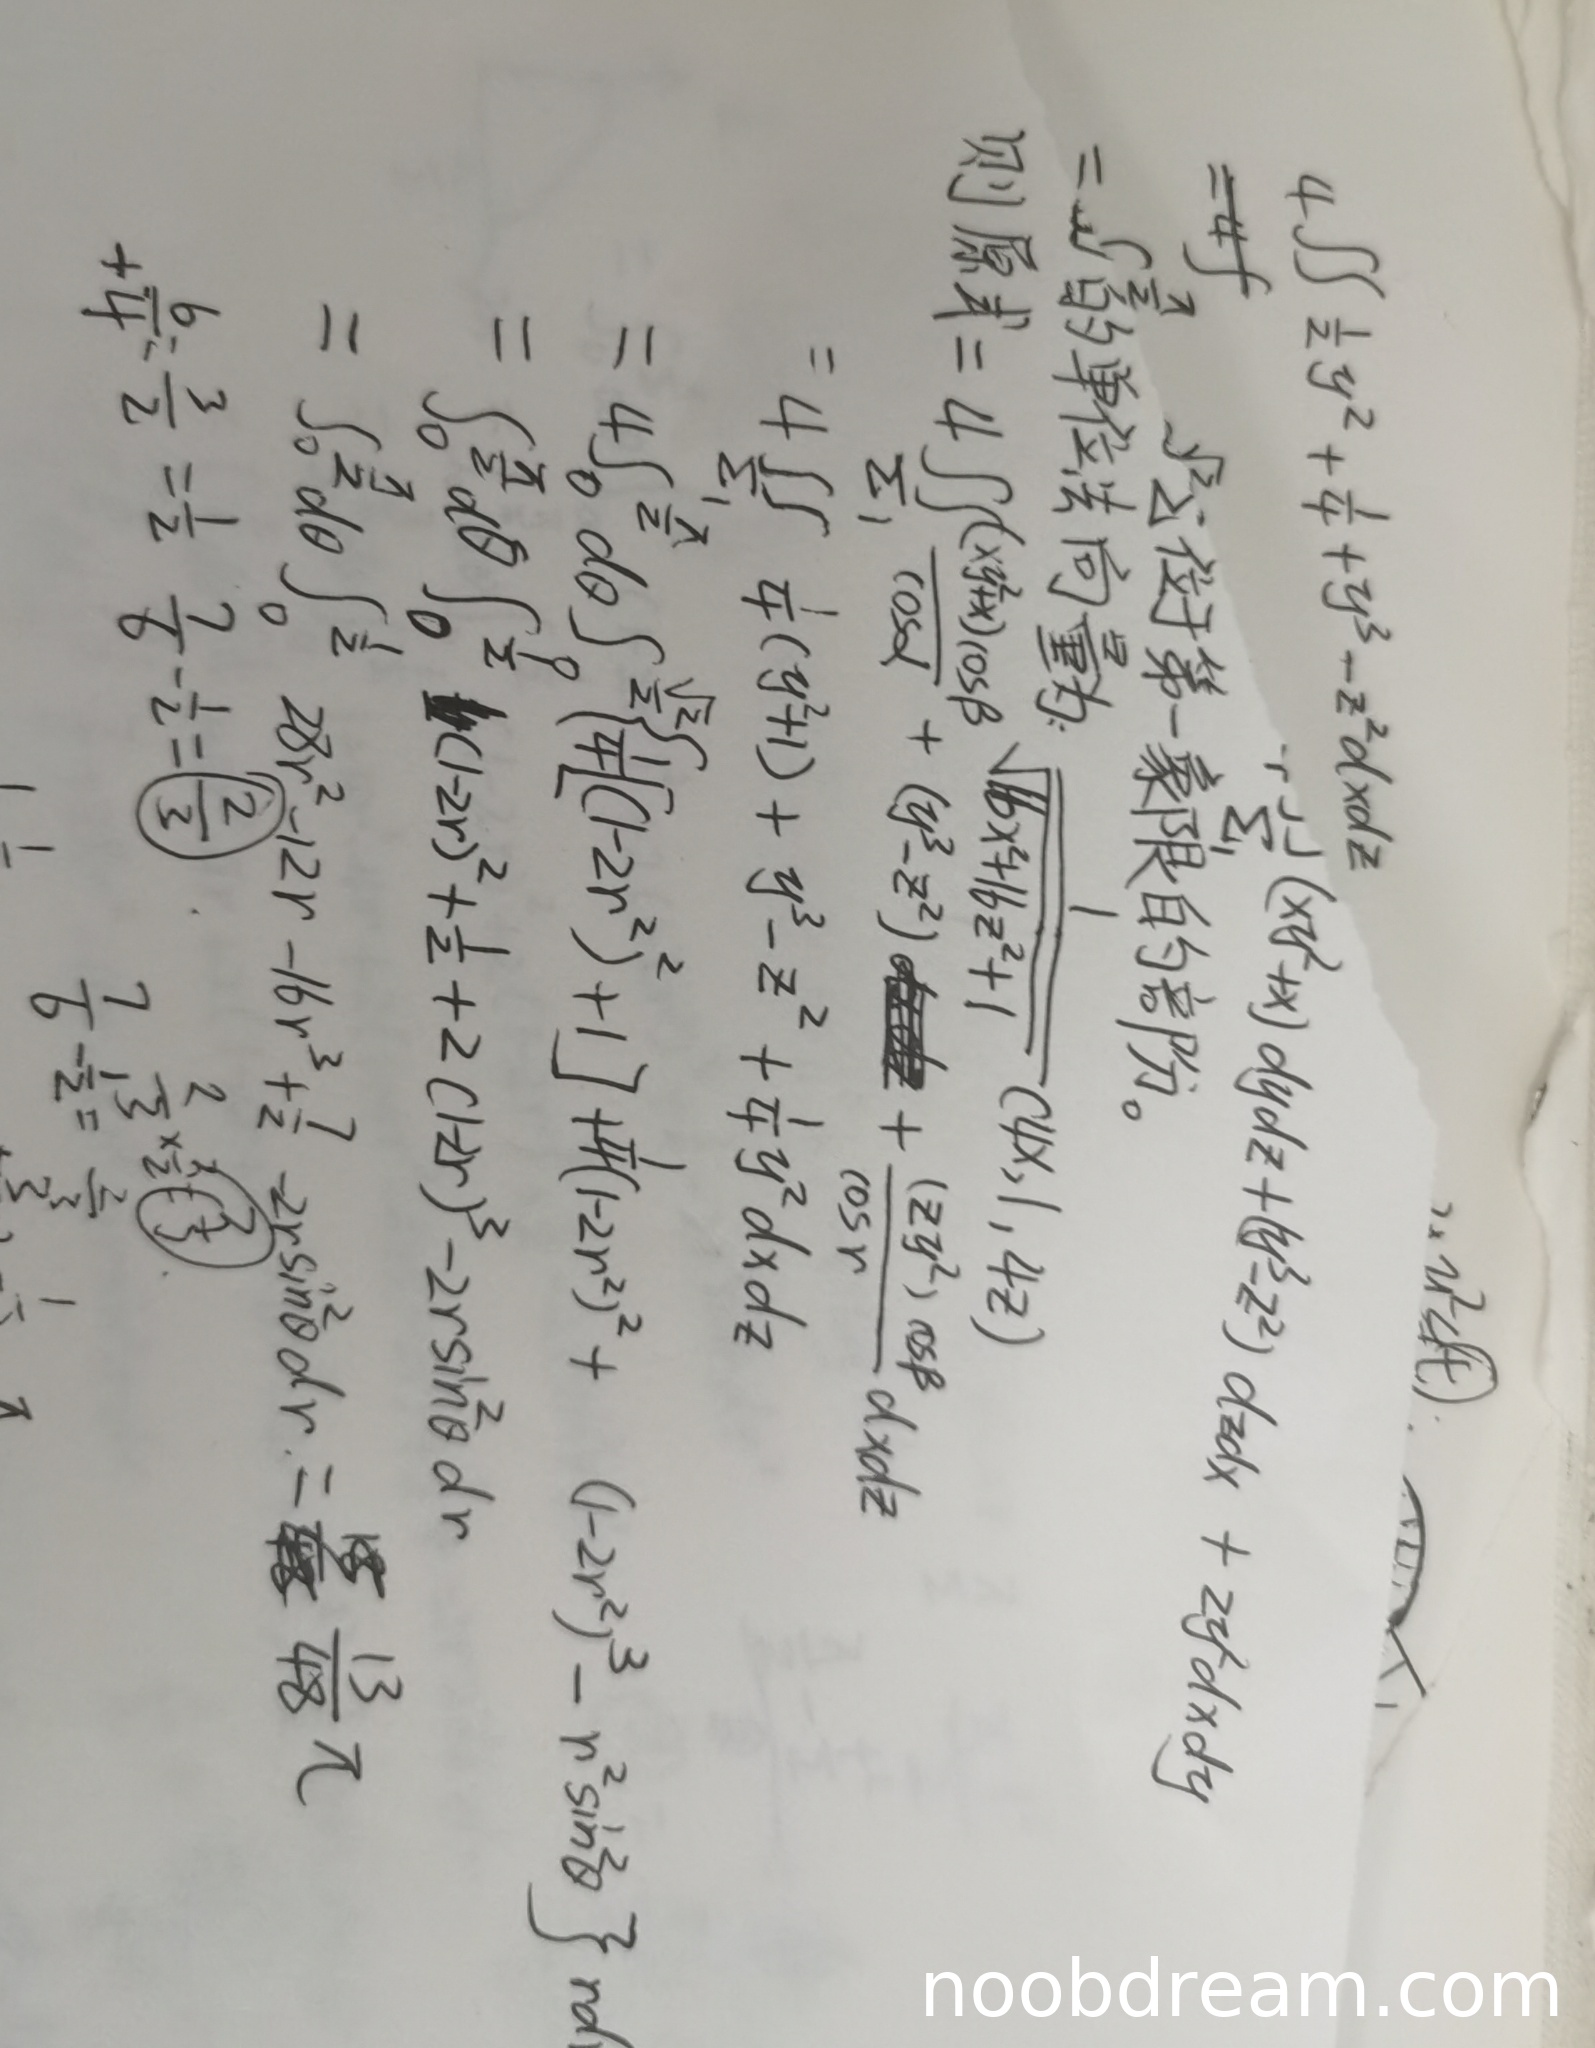 4∬ ½y² + ¼ + y³ - z² dxdz
∬Σ₁ (xy²+x) dydz + (y³-z²) dzdx + zy²dxdy
Σ₁位于第一象限的部分。
的单位法向量为: 1/√(16x²+16z²+1) (4x, 1, 4z)
则原式 = 4∬Σ₁ (xy²+x)cosβ/cosα + (y³-z²) + (zy²)cosβ/cosr dxdz
= 4∬Σ₁ ¼(y²+1) + y³ - z² + ¼y² dxdz
= 4∫₀^(π/2) dθ ∫₀^(√2/2) {¼[(1-2r²)²+1] + ¼(1-2r²)² + (1-2r²)³ - r²sin²θ} rdr
= ∫₀^(π/2) dθ ∫₀^(1/2) (1-2r)² + ½ + 2(1-2r)³ - 2rsin²θ dr
= ∫₀^(π/2) dθ ∫₀^(1/2) 28r² - 12r - 16r³ + 7/2 - 2rsin²θ dr = 13/48 π
= ½ 7/6 - ½ = 2/3
7/6 - ½ =
noobdream.com